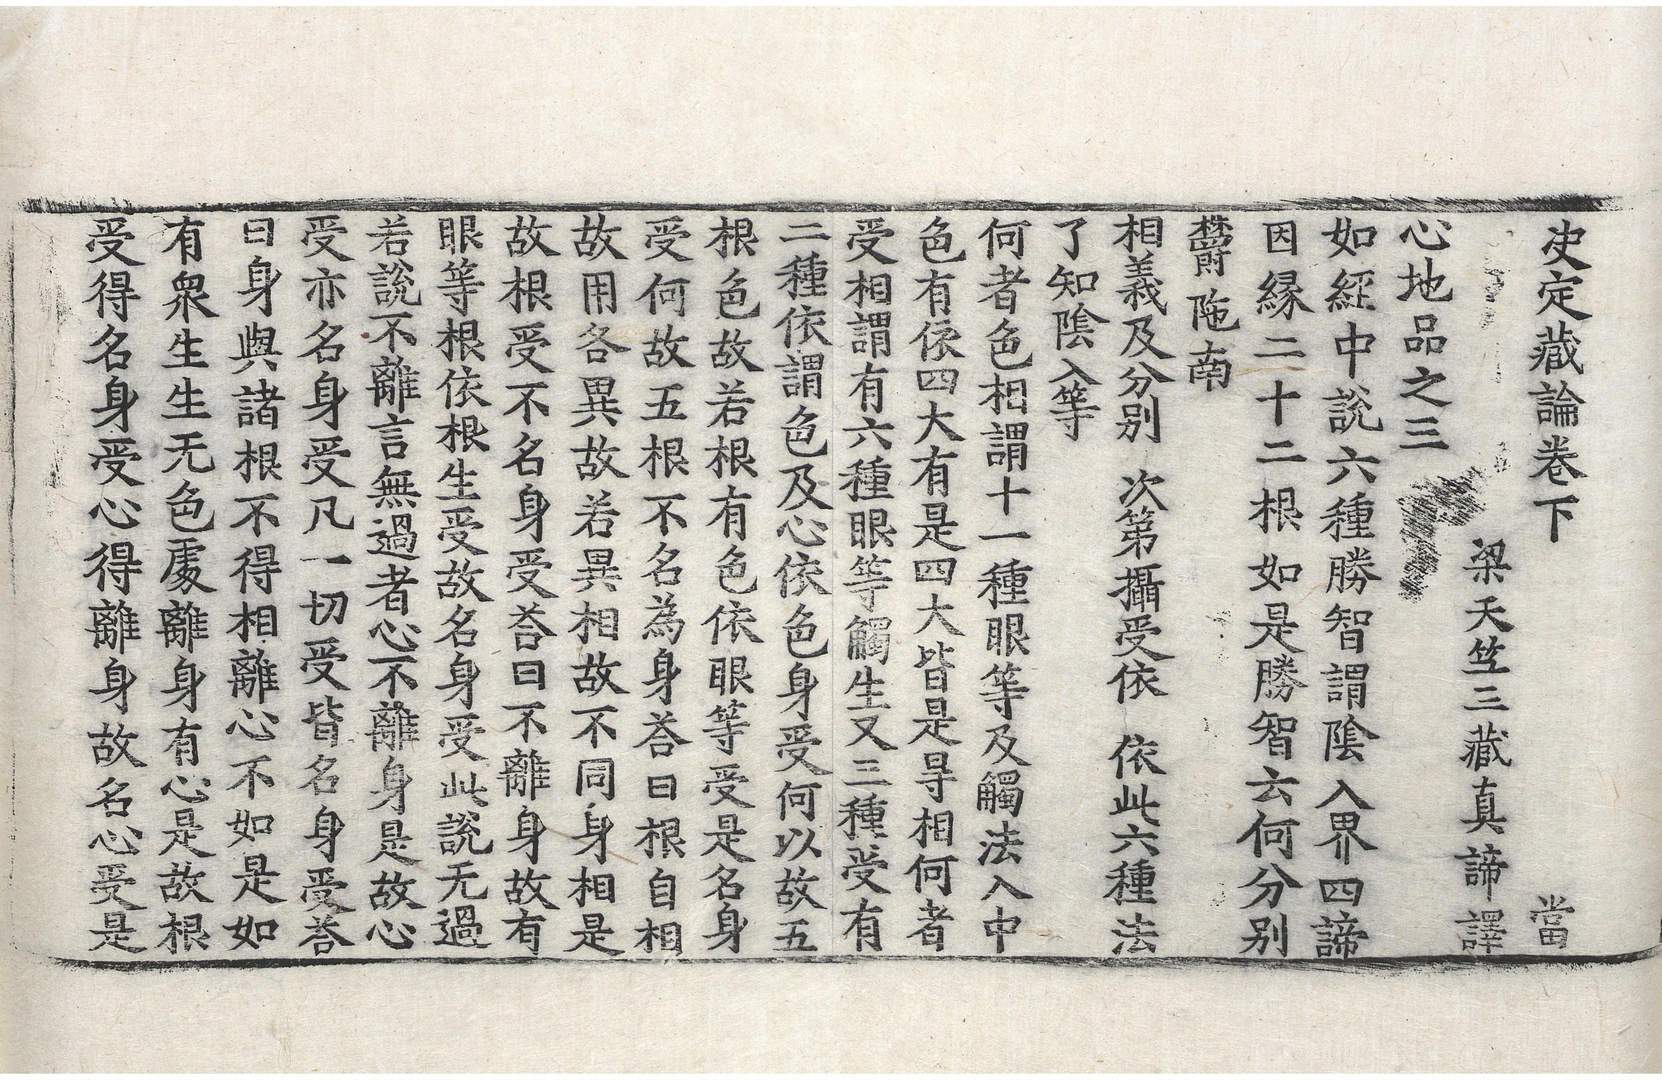 决定藏論卷下 當
梁天竺三藏真諦譯
心地品之三
如經中說六種勝智謂陰入界四諦
因縁二十二根如是勝智云何分別
欝陁南
相義及分別 次第攝受依 依此六種法
了知陰入等
何者色相謂十一種眼等及觸法入中
色有依四大有是四大皆是㝵相何者
受相謂有六種眼等觸生又三種受有
二種依謂色及心依色身受何以故五
根色故若根有色依眼等受是名身
受何故五根不名為身荅曰根自相
故用各異故若異相故不同身相是
故根受不名身受荅曰不離身故有
眼等根依根生受故名身受此說无過
若說不離言無過者心不離身是故心
受亦名身受凡一切受皆名身受荅
曰身與諸根不得相離心不如是如
有衆生生无色處離身有心是故根
受得名身受心得離身故名心受是